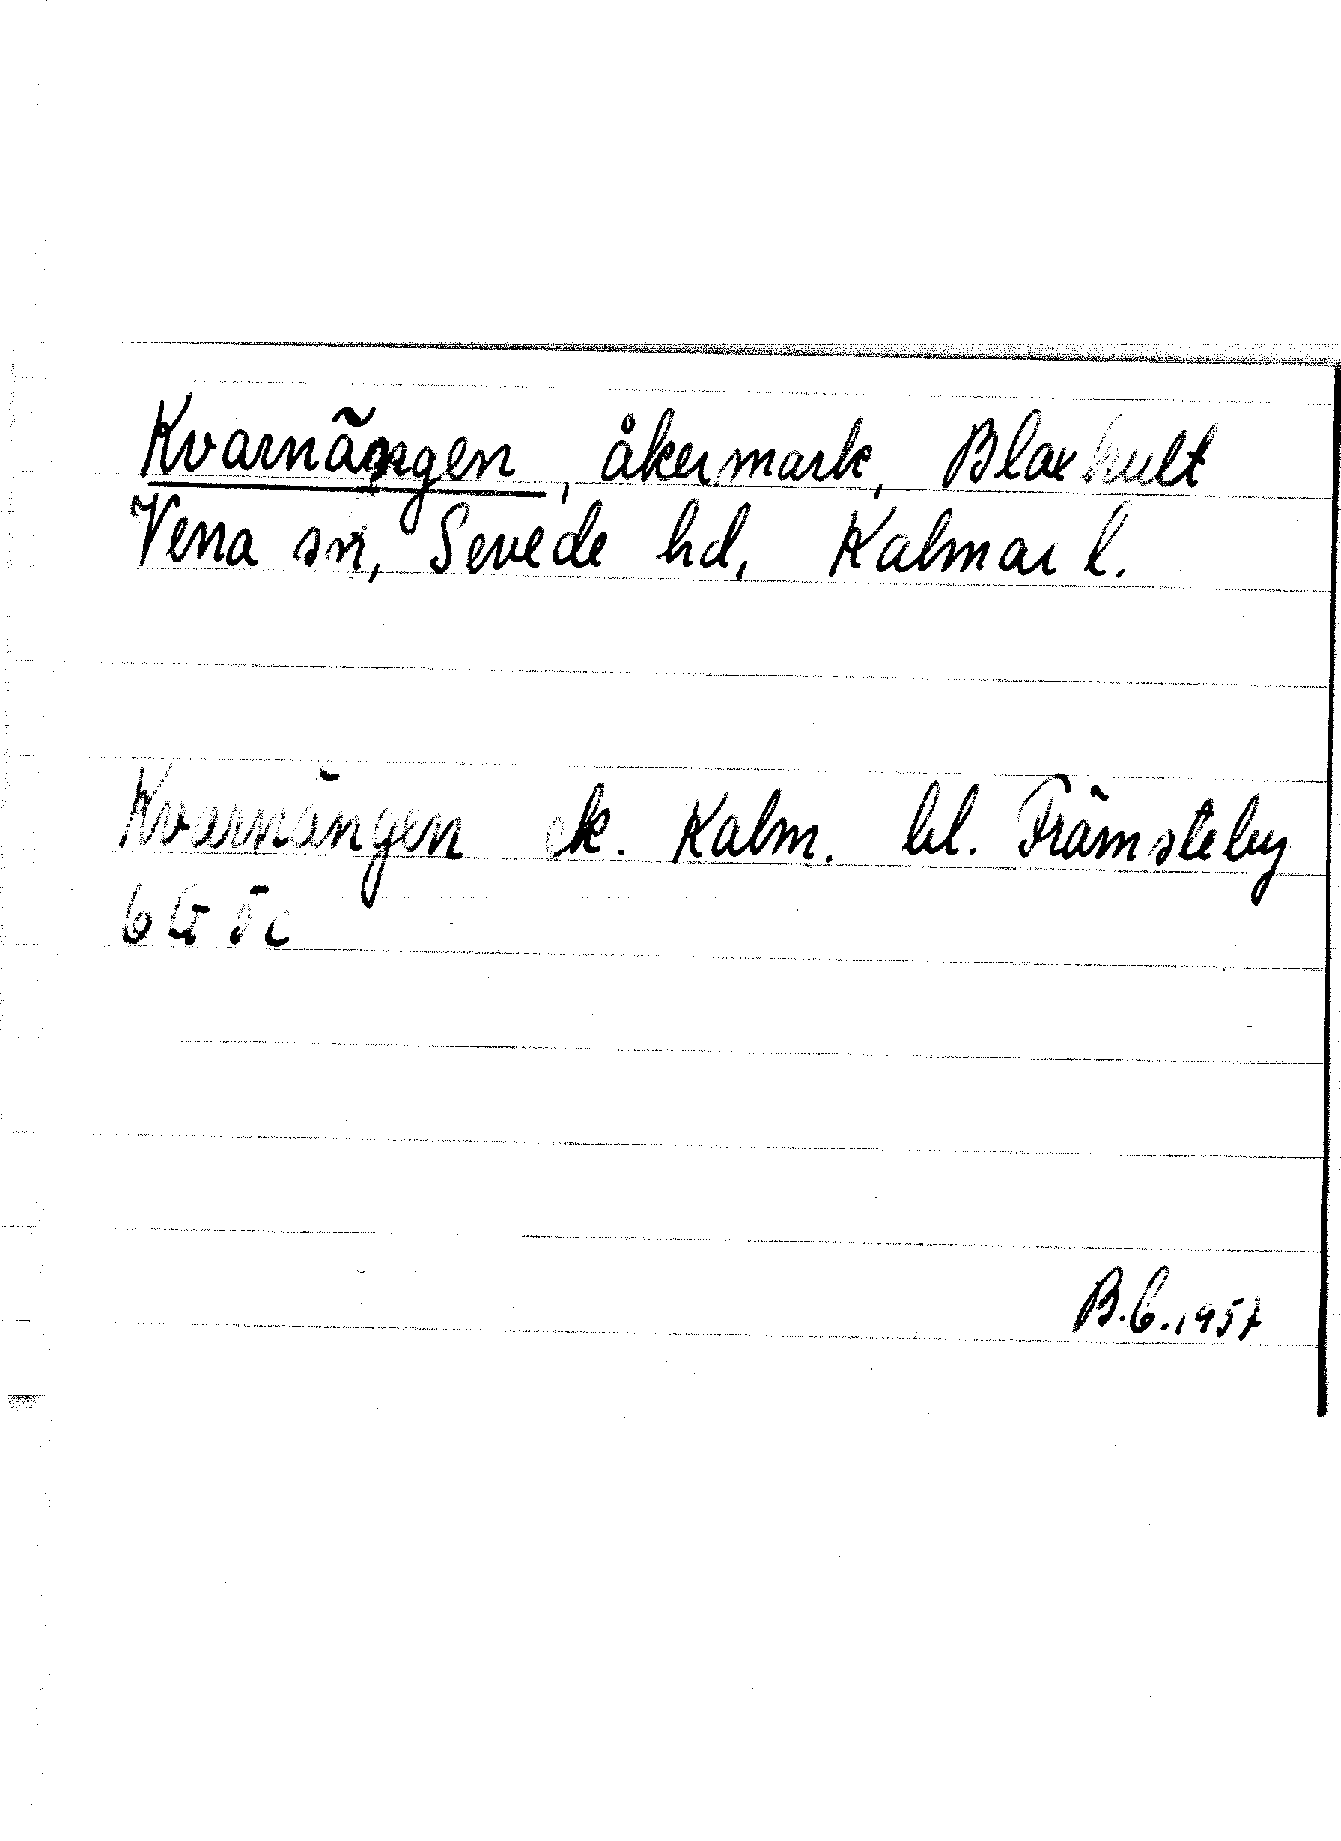 Kvarnängen, åkermark, Blaxhult
Vena sn, Sevede hd, Kalmar l.
Kvarnängen ek. Kalm. bl. Främsteby
6 G 5 c
B.G.1957